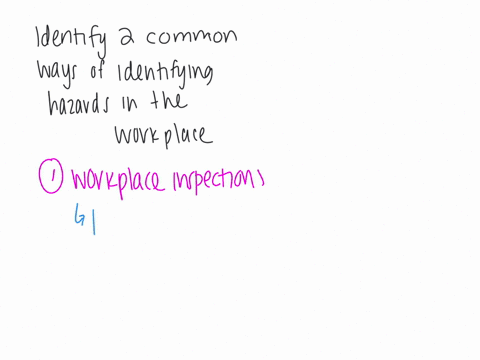 Identify 2 common
ways of identifying
hazards in the
workplace
① workplace inspections
↳